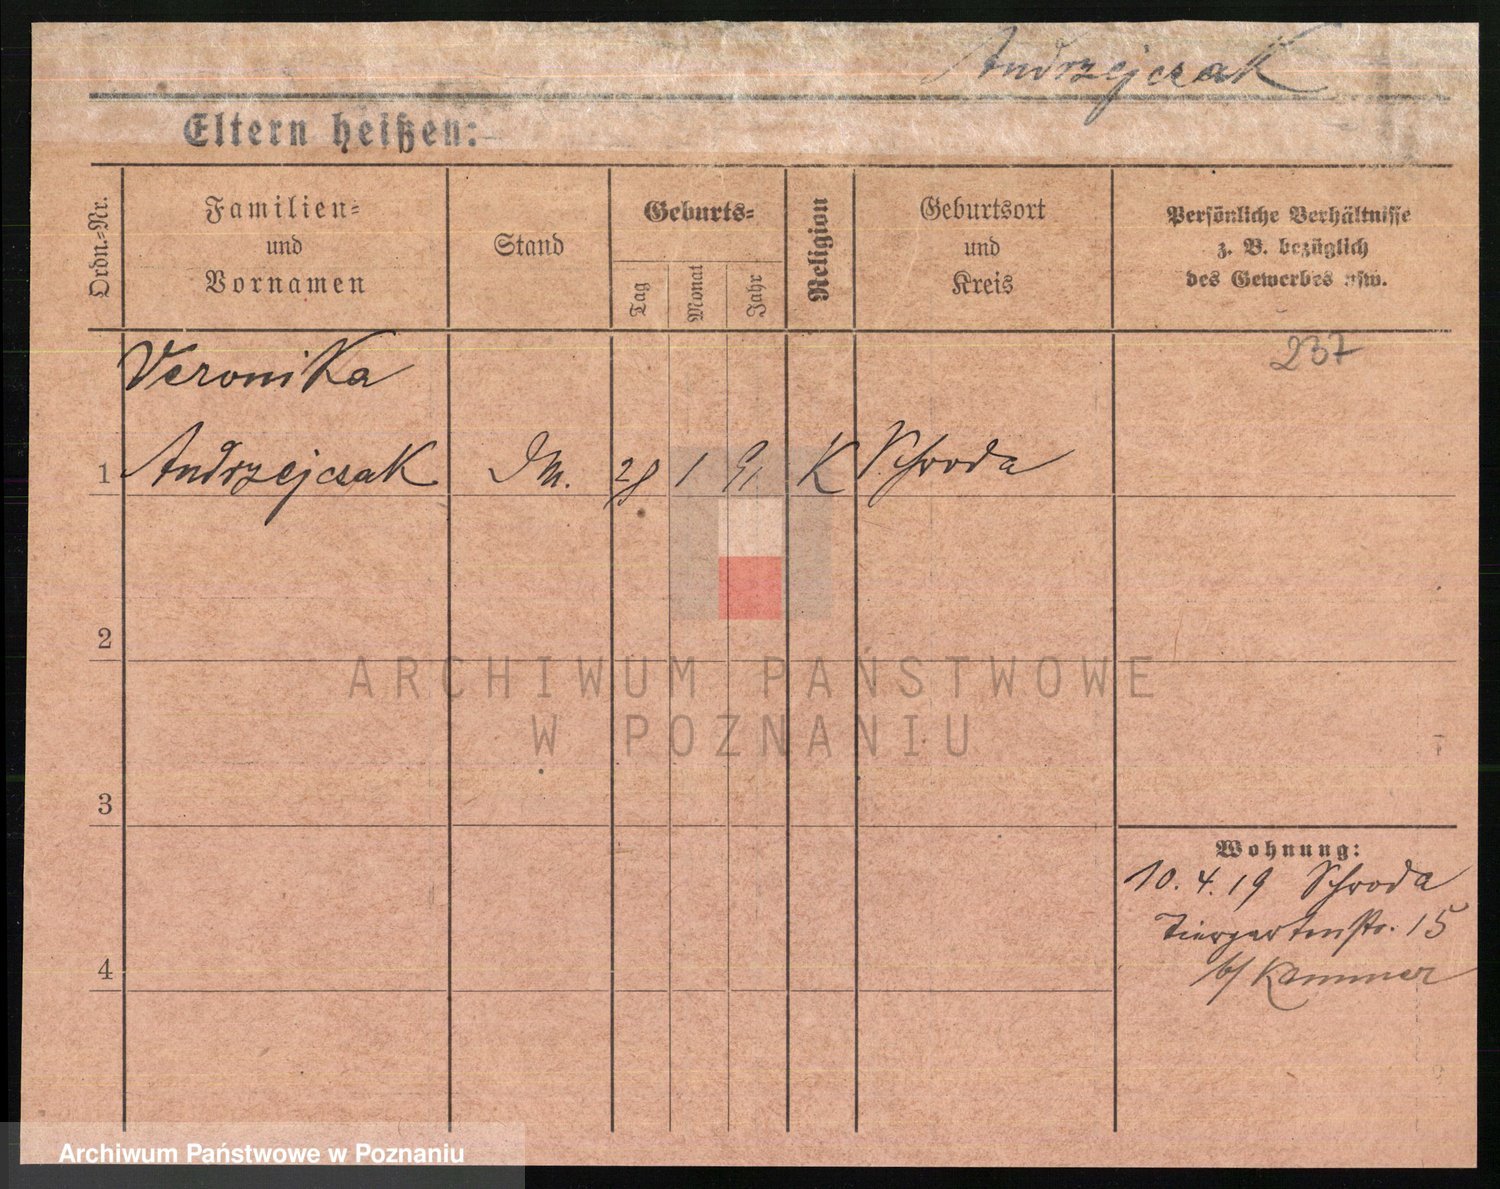 Andrzejczak
Eltern heißen:
Ordn.=Nr.
Familien=
und
Vornamen
Stand
Geburts=
Tag
Monat
Jahr
Religion
Geburtsort
und
Kreis
Persönliche Verhältnisse
z. B. bezüglich
des Gewerbes usw.
237
Veronika
1 Andrzejczak 1 91 K Schroda
2
3
4
Wohnung:
10. 4. 19 Schroda
Tiergartenstr. 15
b/ Kammer
ARCHIWUM PAŃSTWOWE
W POZNANIU
Archiwum Państwowe w Poznaniu